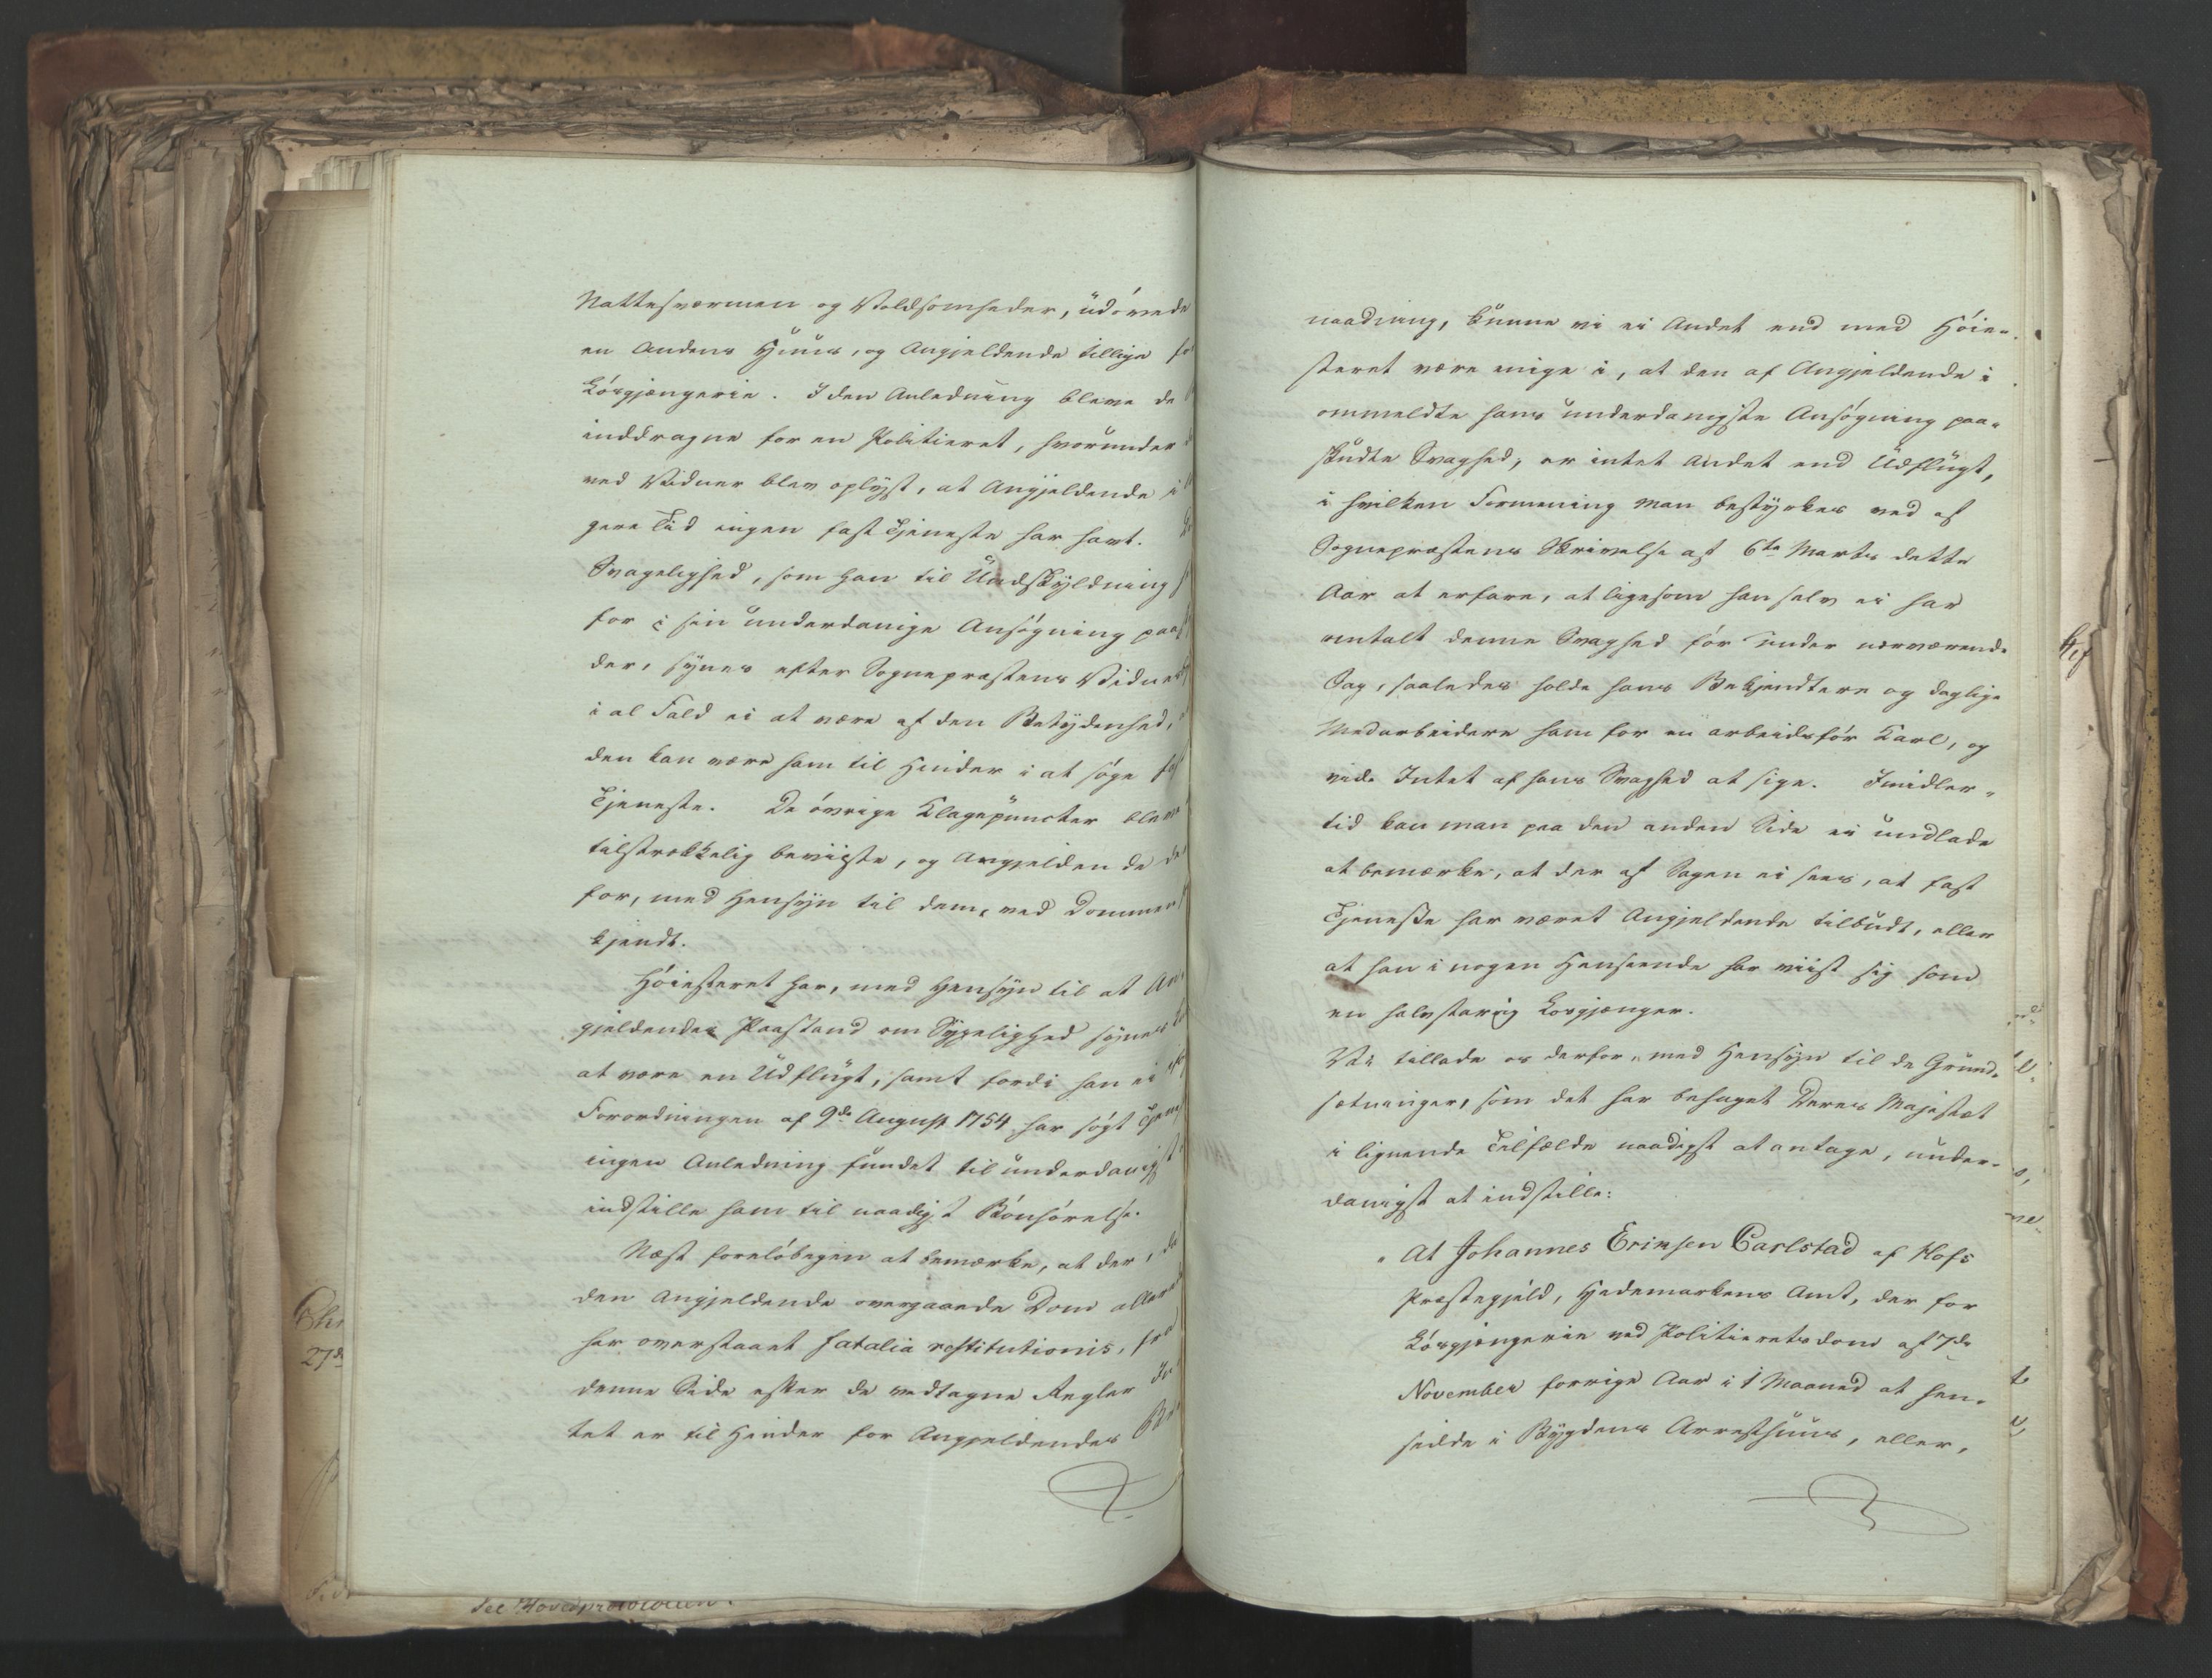 Nattesværmen og Voldsomheder, udøvede
en Andens Huus, og Angjeldende tillige
Løsgjængerie. I den Anledning bleve de
inddragne for en Politieret, hvorunder
ved Vidner blev oplyst, at Angjeldende i
gere Tid ingen fast Tjeneste har havt.
Svagelighed, som han til Undskyldning
for i sin underdanige Ansøgning
der, synes efter Sognepræstens
i al Fald ei at være af den Betydenhed,
den kan være ham til Hinder i at søge
Tjeneste. De øvrige Klagepuncter bleve
tilstrækkelig beviiste, og Angjeldende
for, med Hensyn til dem, ved Dommen
kjendt.
Høiesteret har, med Hensyn til at An-
gjeldendes Paastand om Sygelighed synes
at være en Udflugt, samt fordi han ei
Forordningen af 9de August 1754 har søgt
ingen Anledning fundet til underdanigst
indstille ham til naadigst Bønhørelse.
Næst foreløbigen at bemærke, at der,
den Angjeldende overgaaede Dom
har overstaaet fatalia restitutionis, fra
denne Side efter de vedtagne Regler In-
tet er til Hinder for Angjeldendes
naadning, kunne vi ei Andet end med Høie-
steret være enige i, at den af Angjeldende i
ommeldte hans underdanigste Ansøgning paa-
skudte Svaghed, er intet Andet end Udflugt,
i hvilken Formening man bestyrkes ved af
Sognepræstens Skrivelse af 6te Marts dette
Aar at erfare, at ligesom han selv ei har
omtalt denne Svaghed før under nærværende
Sag, saaledes holde hans Bekjendtere og daglige
Medarbeidere ham for en arbeidsfør Karl, og
vide Intet af hans Svaghed at sige. Imidler-
tid kan man paa den anden Side ei undlade
at bemærke, at der af Sagen ei sees, at fast
Tjeneste har været Angjeldende tilbudt, eller
at han i nogen Henseende har viist sig som
en halvstarrig Løsgjænger.
Vi tillade os derfor, med Hensyn til de Grund-
sætninger, som det har behaget Deres Majestæt
i lignende Tilfælde naadigst at antage, under-
danigst at indstille:
"At Johannes Eriksen Carlstad af Hofs
Præstegjeld, Hedemarkens Amt, der for
Løsgjængerie ved Politieretsdom af 7de
November forrige Aar i 1 Maaned at hen-
sidde i Bygdens Arresthuus, eller,
Chr
27de
See Hovedprotocollen.